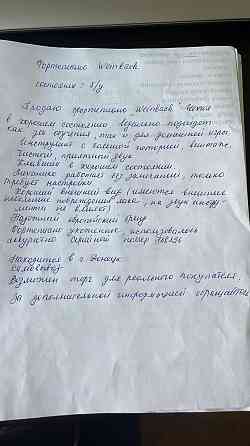 Фортепиано Weinbach
состояние: б/у
Продаю фортепиано Weinbach Чехия
в хорошем состоянии Идеально подойдет
как для обучения, так и для домашней игры.
Инструмент с большой историей винтаж.
Чистый приятный звук
Клавиши в хорошем состоянии.
Механика работает без залипаний, только
требует настройки
Хороший внешний вид (имеются внешние
небольшие повреждения лака, на звук инстру-
мента не влияет)
европейский бренд
Фортепиано ухоженное использовалось
аккуратно Серийный номер
Находится в г. Донецк
самовывоз
Возможен торг для реального покупателя.
За дополнительной информацией